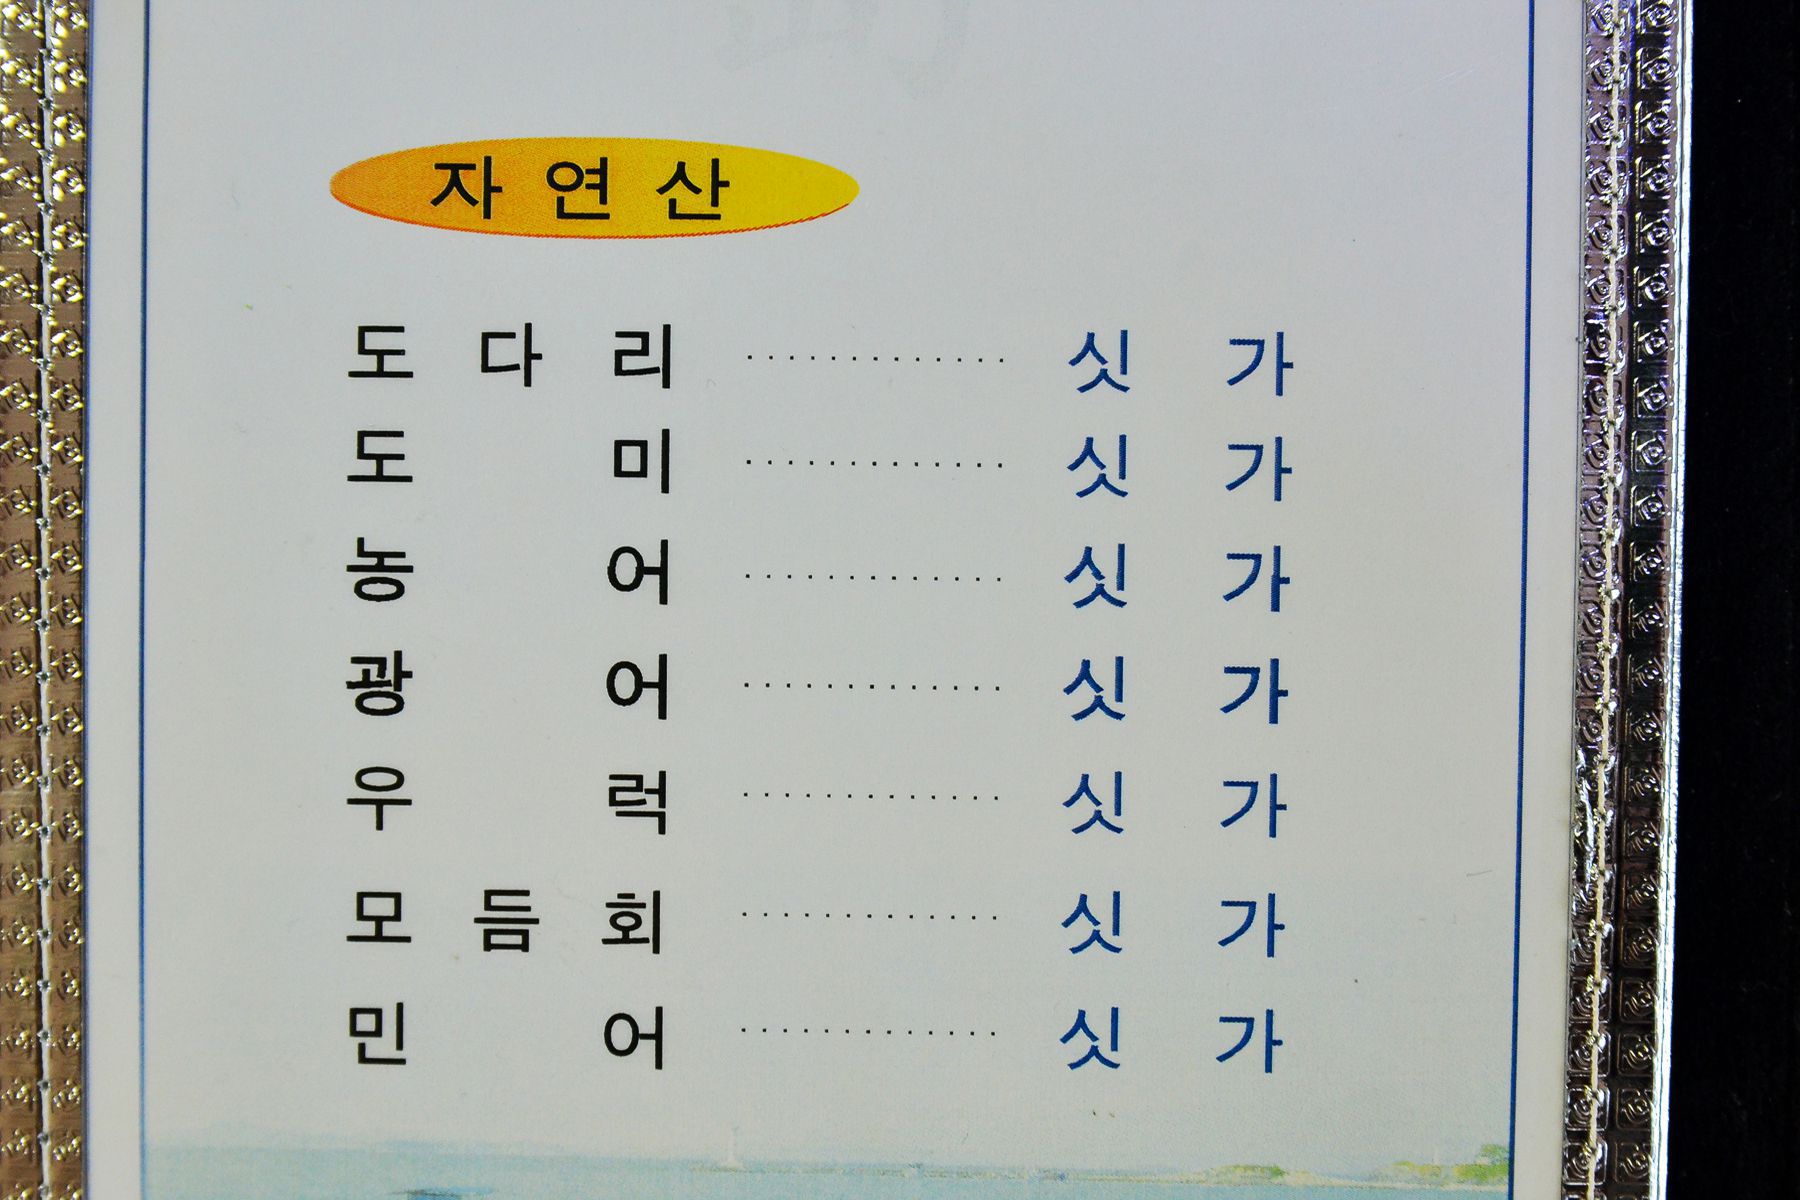 자연산
도다리 ............. 싯가
도미 ............. 싯가
농어 ............. 싯가
광어 ............. 싯가
우럭 ............. 싯가
모듬회 ............. 싯가
민어 ............. 싯가